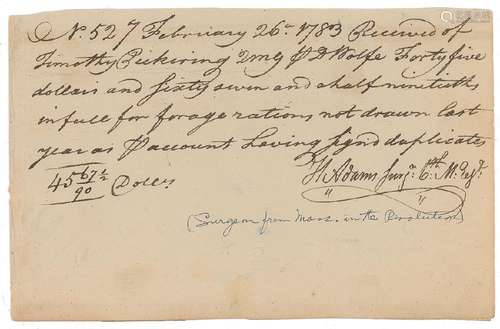 No. 527 February 26th 1783 Received of
Timothy Pickering 2mg ⅌ D Wolfe Forty five
dollars and sixty seven and a half ninetieths
in full for forage rations not drawn last
year as ⅌ account having sign'd duplicates
45 67½/90 Dolls
H Adams Surgn. 6th M. Regt.
(Surgeon from Mass. in the Revolution)